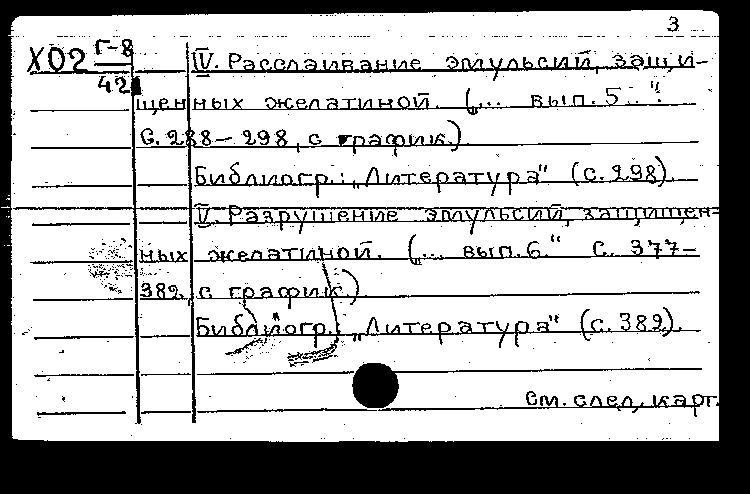 3
Х02 Г-8
42
IV. Расслаивание эмульсий, защи-
щенных желатиной. („... вып. 5...".
С. 288-298, с график.)
Библиогр.: „Литература" (с. 298).
V. Разрушение эмульсий, защищен-
ных желатиной. („... вып. 6." С. 377-
382, с график.)
Библиогр.: „Литература" (с. 382).
См. след. карт.